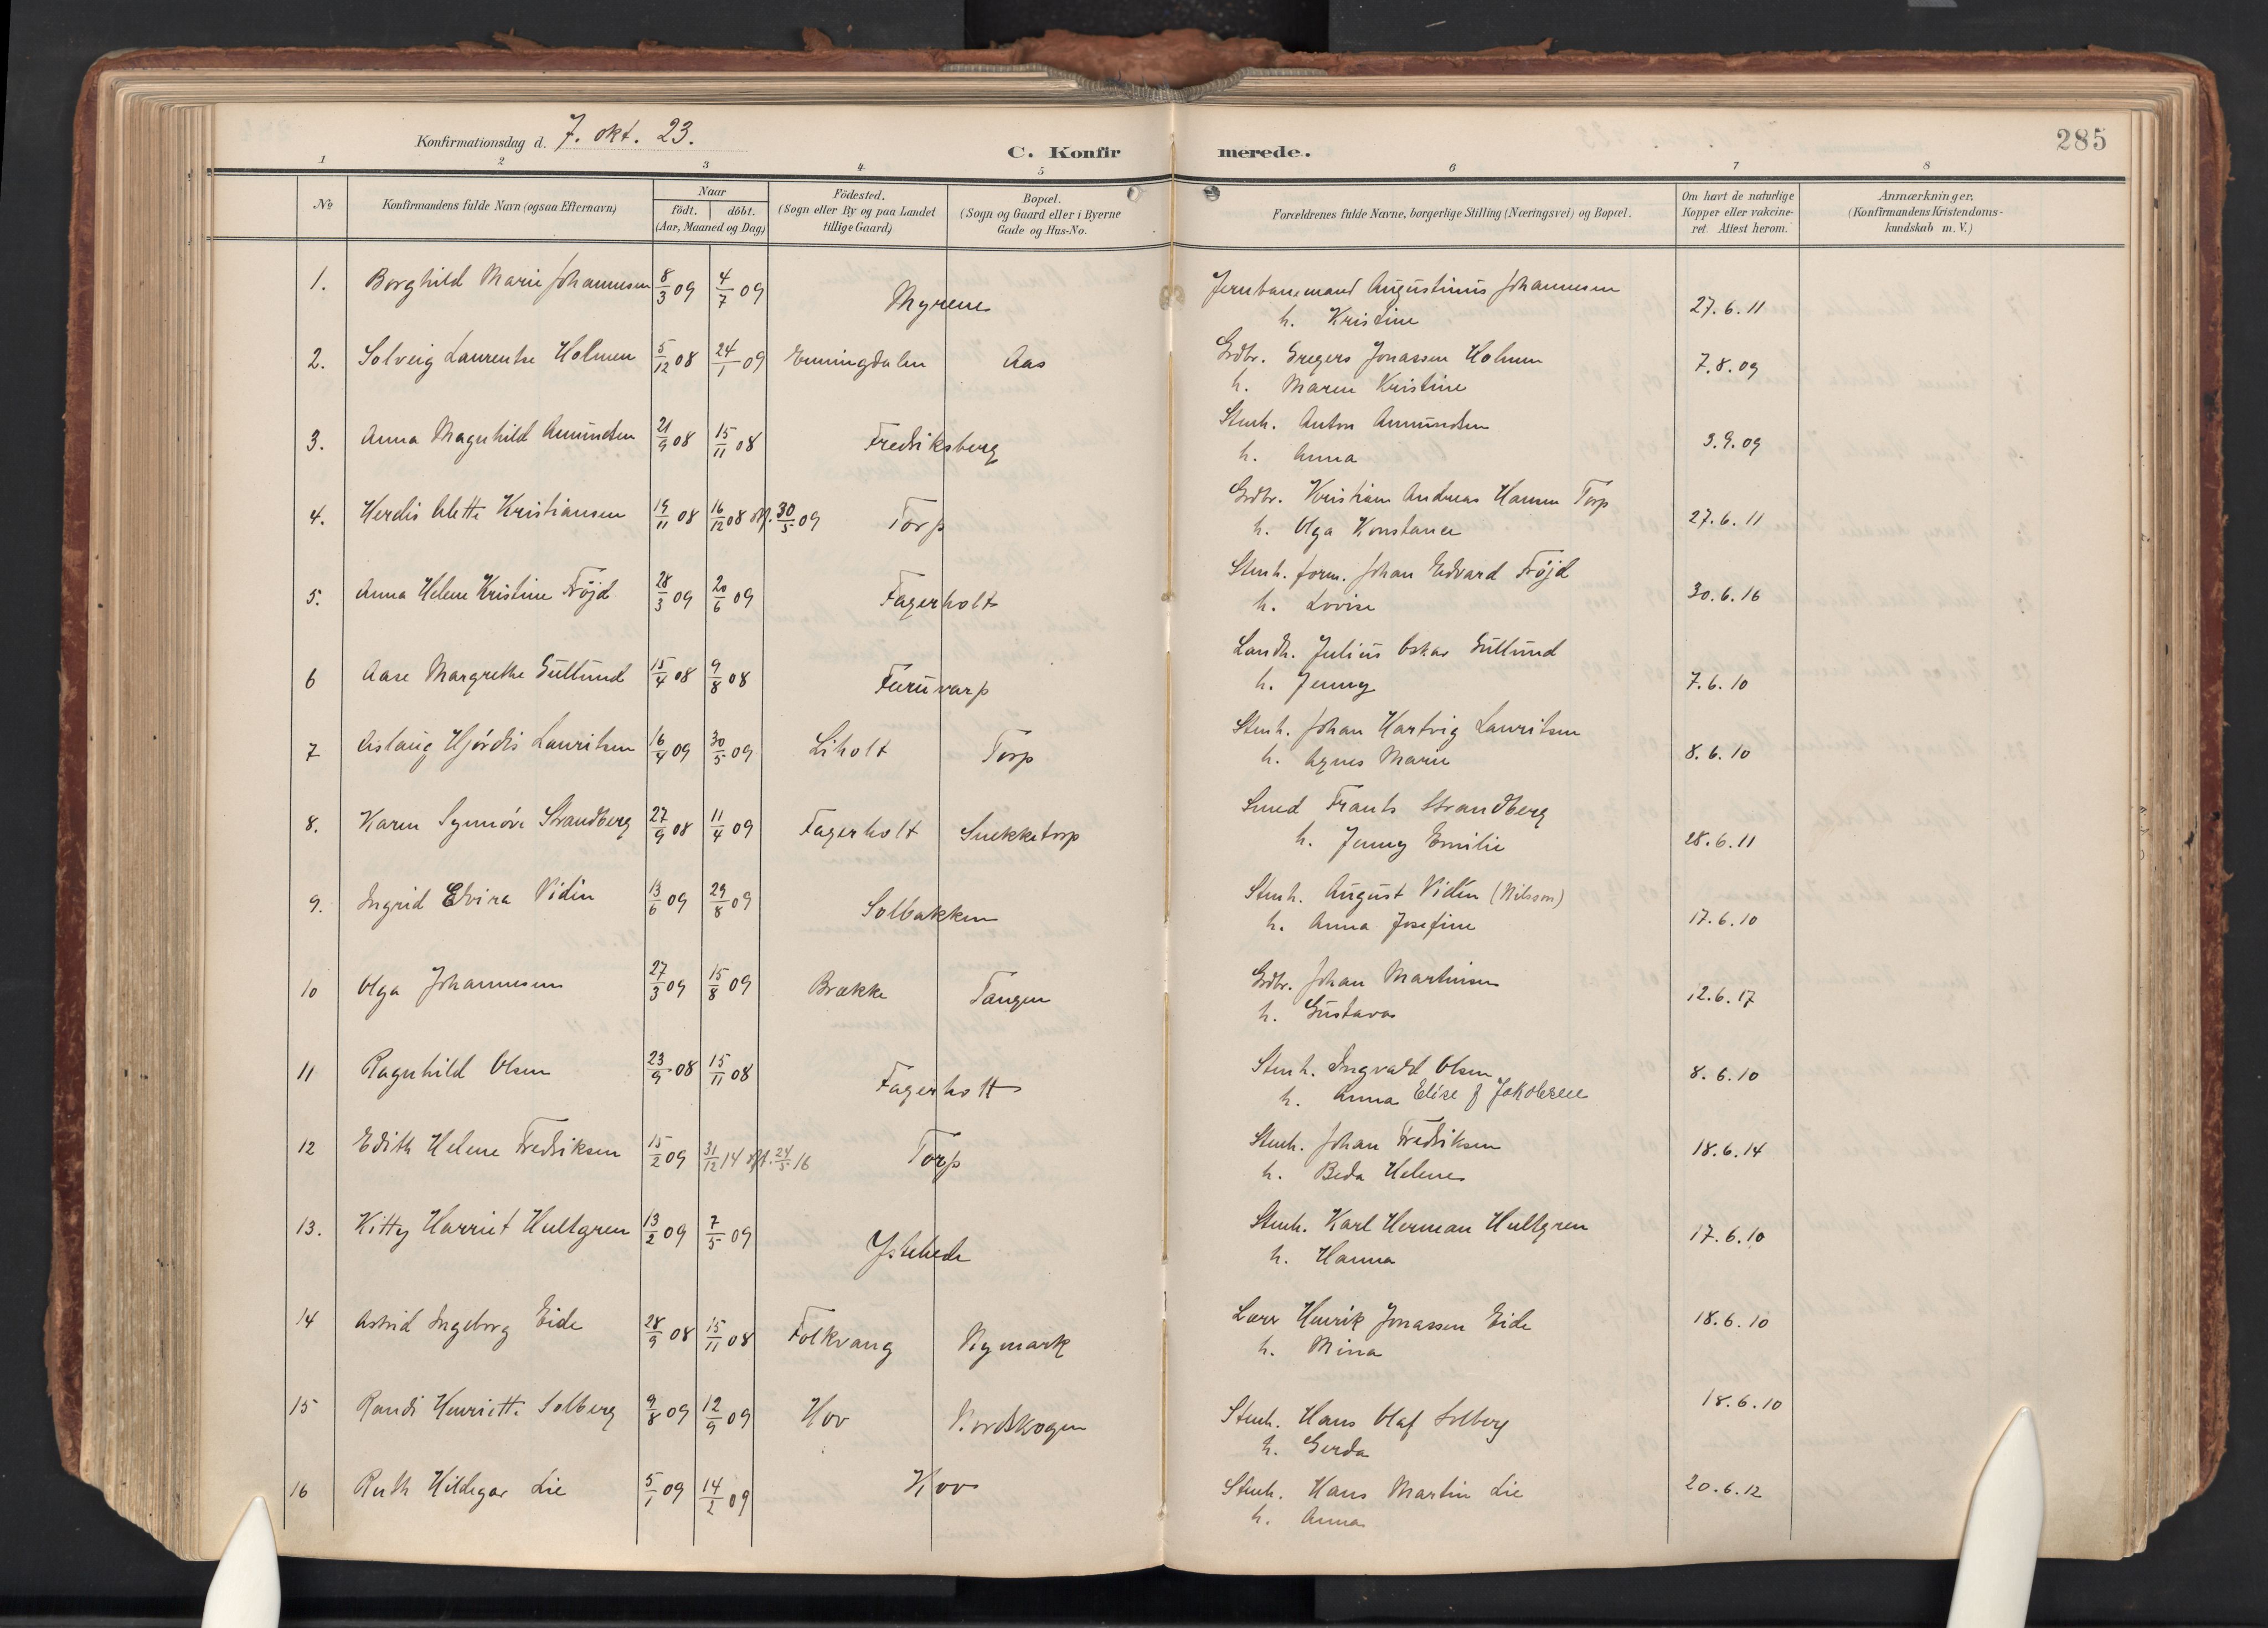 285
Konfirmationsdag d. 7. okt. 23.
C. Konfirmerede.
1 2 3 4 5 6 7 8
No
Konfirmandens fulde Navn (ogsaa Efternavn)
Naar
födt. | döbt.
(Aar, Maaned og Dag)
Födested.
(Sogn eller By og paa Landet
tillige Gaard)
Bopæl.
(Sogn og Gaard eller i Byerne
Gade og Hus-No.
Forældrenes fulde Navne, borgerlige Stilling (Næringsvei) og Bopæl.
Om havt de naturlige
Kopper eller vakcine-
ret. Attest herom.
Anmærkninger,
(Konfirmandens Kristendoms-
kundskab m. V.)
1. Borghild Marie Johannesen 8/3 09 4/7 09 Myrene Jernbanemand Augustinus Johannesen 27.6.11
h. Kristine
2. Solveig Laurentse Holmen 5/12 08 24/1 09 Enningdalen Aas Grdbr. Gregers Jonassen Holmen 7.8.09
h. Maren Kristine
3. Anna Magnhild Amundsen 21/9 08 15/11 08 Fredriksberg Stenh. Anton Amundsen 3.9.09
h. Anna
4. Herdis Alette Kristiansen 19/11 08 16/12 08 stf. 30/5 09 Torp Grdbr. Kristian Andreas Hansen Torp 27.6.11
h. Olga Konstance
5. Anna Helene Kristine Fröjd 28/3 09 20/6 09 Fagerholt Stenh. form. Johan Edvard Fröjd 30.6.16
h. Lovise
6 Aase Margrethe Gullund 15/4 08 9/8 08 Furuvarp Landh. Julius Oskar Gullund 7.6.10
h. Jenny
7 Aslaug Hjørdis Lauritsen 16/4 09 30/5 09 Liholt Torp Stenh. Johan Hartvig Lauritsen 8.6.10
h. Agnes Marie
8. Karen Synnøve Strandberg 27/9 08 11/4 09 Fagerholt Snekketorp Smed Frants Strandberg 28.6.11
h. Jenny Emilie
9. Ingrid Elvira Vidin 13/6 09 29/8 09 Solbakken Stenh. August Vidin (Nilsson) 17.6.10
h. Anna Josefine
10 Olga Johannesen 27/3 09 15/8 09 Brække Tangen Grdbr. Johan Martinsen 12.6.17
h. Gustava
11 Ragnhild Olsen 23/9 08 15/11 08 Fagerholt Stenh. Ingvald Olsen 8.6.10
h. Anna Elise f Jakobsen
12 Edith Helene Fredriksen 15/2 09 31/12 14 stf. 24/5 16 Torp Stenh. Johan Fredriksen 18.6.14
h. Beda Helene
13. Kitty Harriet Hultgren 13/2 09 7/5 09 Ystehede Stenh. Karl Herman Hultgren 17.6.10
h. Hanna
14 Astrid Ingeborg Eide 28/9 08 15/11 08 Folkvang Nymark Lærer Henrik Jonassen Eide 18.6.10
h. Mina
15 Randi Henriette Solberg 9/8 09 12/9 09 Hov Nordskogen Stenh. Hans Olaf Solberg 18.6.10
h. Gerda
16 Ruth Hildegar Lie 5/1 09 14/2 09 Hov Stenh. Hans Martin Lie 20.6.12
h. Anna